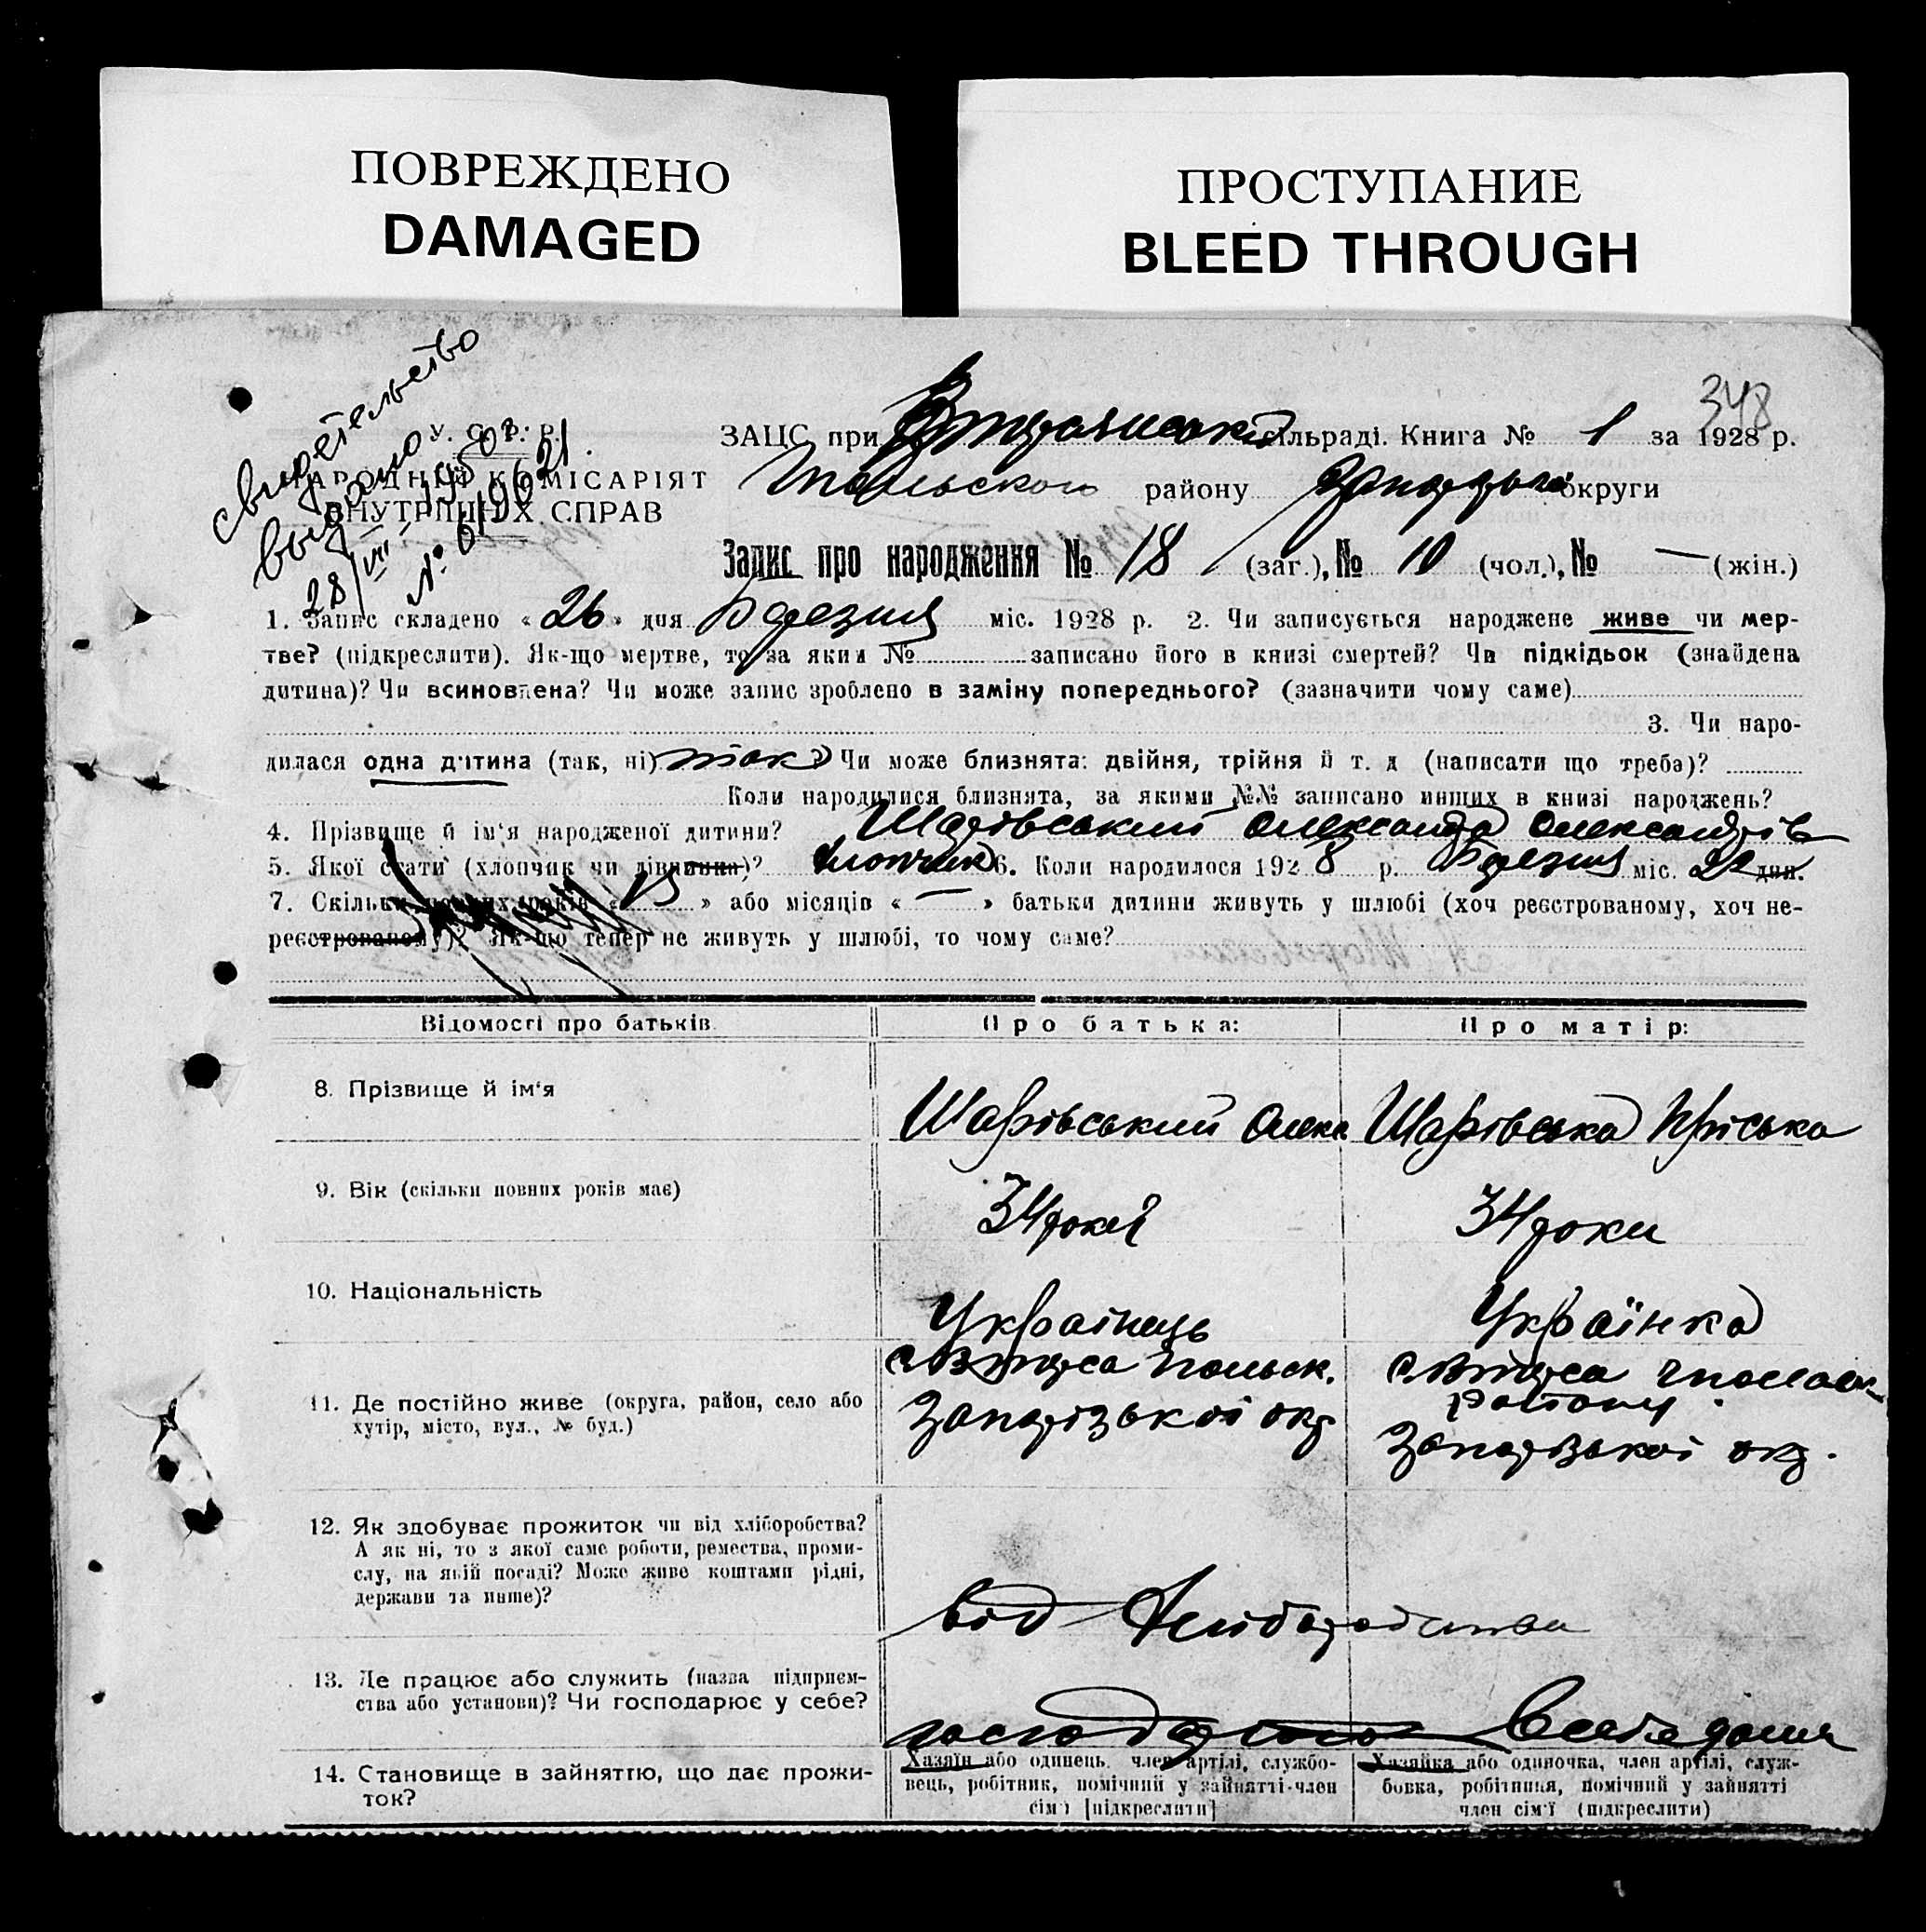 ПОВРЕЖДЕНО
DAMAGED
ПРОСТУПАНИЕ
BLEED THROUGH
348
свидетельство
выдано
28/VII 1950 г.
№
У. С. Р. Р.
НАРОДНІЙ КОМІСАРІЯТ
ВНУТРІШНІХ СПРАВ
ЗАЦС при сільраді. Книга № 1 за 1928 р.
району округи
Запис про народження № 18 (заг.), № 10 (чол.), № — (жін.)
1. Запис складено « 26 » дня Березня міс. 1928 р. 2. Чи записується народжене живе чи мер-
тве? (підкреслити). Як-що мертве, то за яким № записано його в книзі смертей? Чи підкідьок (знайдена
дитина)? Чи всиновлена? Чи може запис зроблено в заміну попереднього? (зазначити чому саме)
3. Чи наро-
дилася одна дитина (так, ні) так Чи може близнята: двійня, трійня й т. д (написати що треба)?
Коли народилися близнята, за якими №№ записано инших в книзі народжень?
4. Прізвище й ім'я народженої дитини? Шарівський Олександр Олександрів
5. Якої стати (хлопчик чи дівчинка)? хлопчик 6. Коли народилося 1928 р. Березня міс. 22 дня.
7. Скільки повних років « » або місяців « — » батьки дитини живуть у шлюбі (хоч реєстрованому, хоч не-
реєстрованому)? Як-що тепер не живуть у шлюбі, то чому саме?
Відомості про батьків Про батька: Про матір:
8. Прізвище й ім'я Шарівський Олекс Шарівська Пріська
9. Вік (скільки повних років має) 34 роки 34 роки
10. Національність Українець Українка
11. Де постійно живе (округа, район, село або
хутір, місто, вул., № буд.)
району
Запорізької окр Запорізької окр.
12. Як здобуває прожиток чи від хліборобства?
А як ні, то з якої саме роботи, ремества, проми-
слу, на якій посаді? Може живе коштами рідні,
держави та инше)?
від хліборобства
13. Де працює або служить (назва підприєм-
ства або установи)? Чи господарює у себе?
14. Становище в зайняттю, що дає прожи-
ток?
Хазяїн або одинець, член артілі, службо-
вець, робітник, помічний у зайнятті-член
сім'ї [підкреслити]
Хазяйка або одиночка, член артілі, служ-
бовка, робітниця, помічний у зайнятті
член сім'ї (підкреслити)